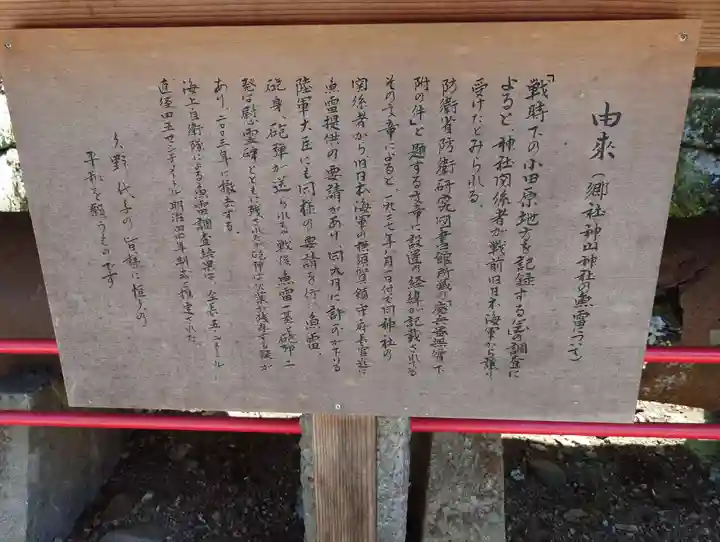 由来(郷社神山神社の魚雷について)
「戦時下の小田原地方を記録する会」の調査に
よると、神社関係者が戦前旧日本海軍から譲り
受けたとみられる。
防衛省防衛研究所図書館所蔵の「廃兵器無償下
附の件」と題する文章に設置の経緯が記載される
その文章によると、一九二七年 月一日付で同神社の
関係者から旧日本海軍の横須賀鎮守府長官宛に
魚雷提供の要請があり、同九月に許可が下りる
陸軍大臣にも同様の要請を行い魚雷
砲身、砲弾が送られる 戦後魚雷一基と砲弾二
発は慰霊碑とともに残されたが砲弾は火薬が残存する疑が
あり、二〇〇三年に撤去する。
海上自衛隊による魚雷調査結果は、全長五・二メートル
直径四五センチメートル 明治四四年製と推定された。
矢野 代子の皆様に恒久の
平和を願うものです